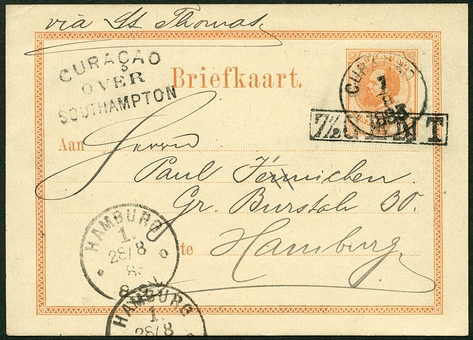 via St Thomas
CURAÇAO
OVER
SOUTHAMPTON
Briefkaart.
CURAÇAO
1
8
1883
7½ CENT
Aan
Herrn
Paul Jernichen
Gr. Burstah 30.
te Hamburg.
HAMBURG
1.
28/8
8
HAMBURG
1.
28/8